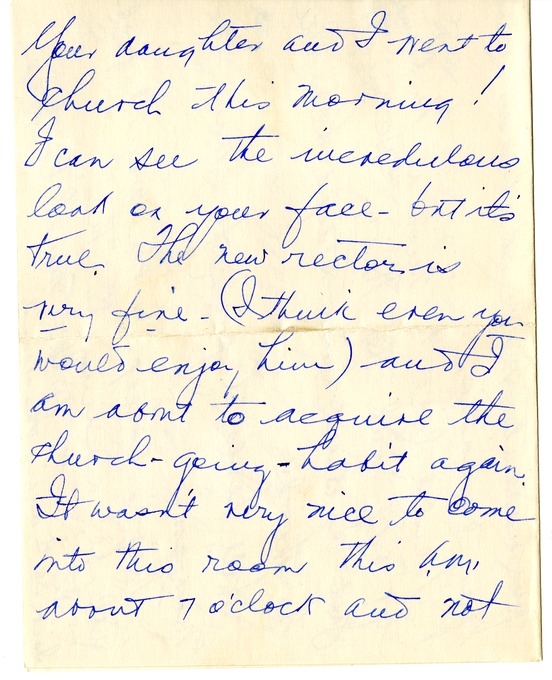 Your daughter and I went to
church this morning!
I can see the incredulous
look on your face - but it's
true. The new rector is
very fine - (I think even you
would enjoy him) and I
am about to acquire the
church-going-habit again.
It wasn't very nice to come
into this room this a.m.
about 7 o'clock and not